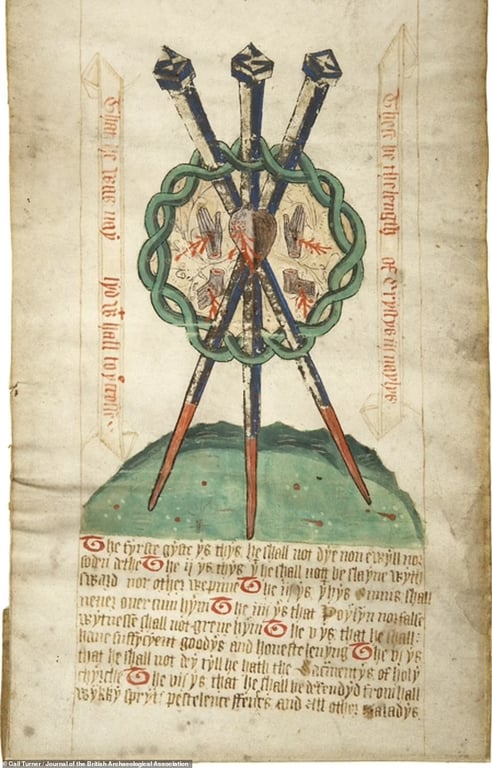 Thes be the length of
The fyrste gyfte ys thys he shall not dye non ewyll nor
soden dethe The ii ys thys yt he shall nott be slayne wyth
sward nor other wepune The iij ys yhys Enimis shall
neuer ouer cum hym The iiij ys that Poysyn nor false
wytnesse shall not greue hym The v ys that he shall
haue suffycyent goodys and honeste leuyng The vi ys
that he shall not dey tyll he hath the Sacmentys of holy
chyrche The vij ys that he shall be defendyd from hall
wykky spryt pestelence ffeuers and all other maladys
© Gail Turner / Journal of the British Archaeological Association